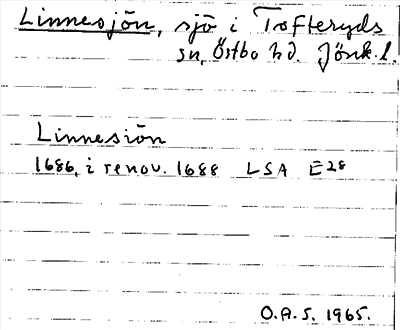 Linnesjön, sjö i Tofteryds
sn, Östbo hd. Jönk. l.
Linnesiön
1686, i renov. 1688 LSA E28
O.A.S. 1965.